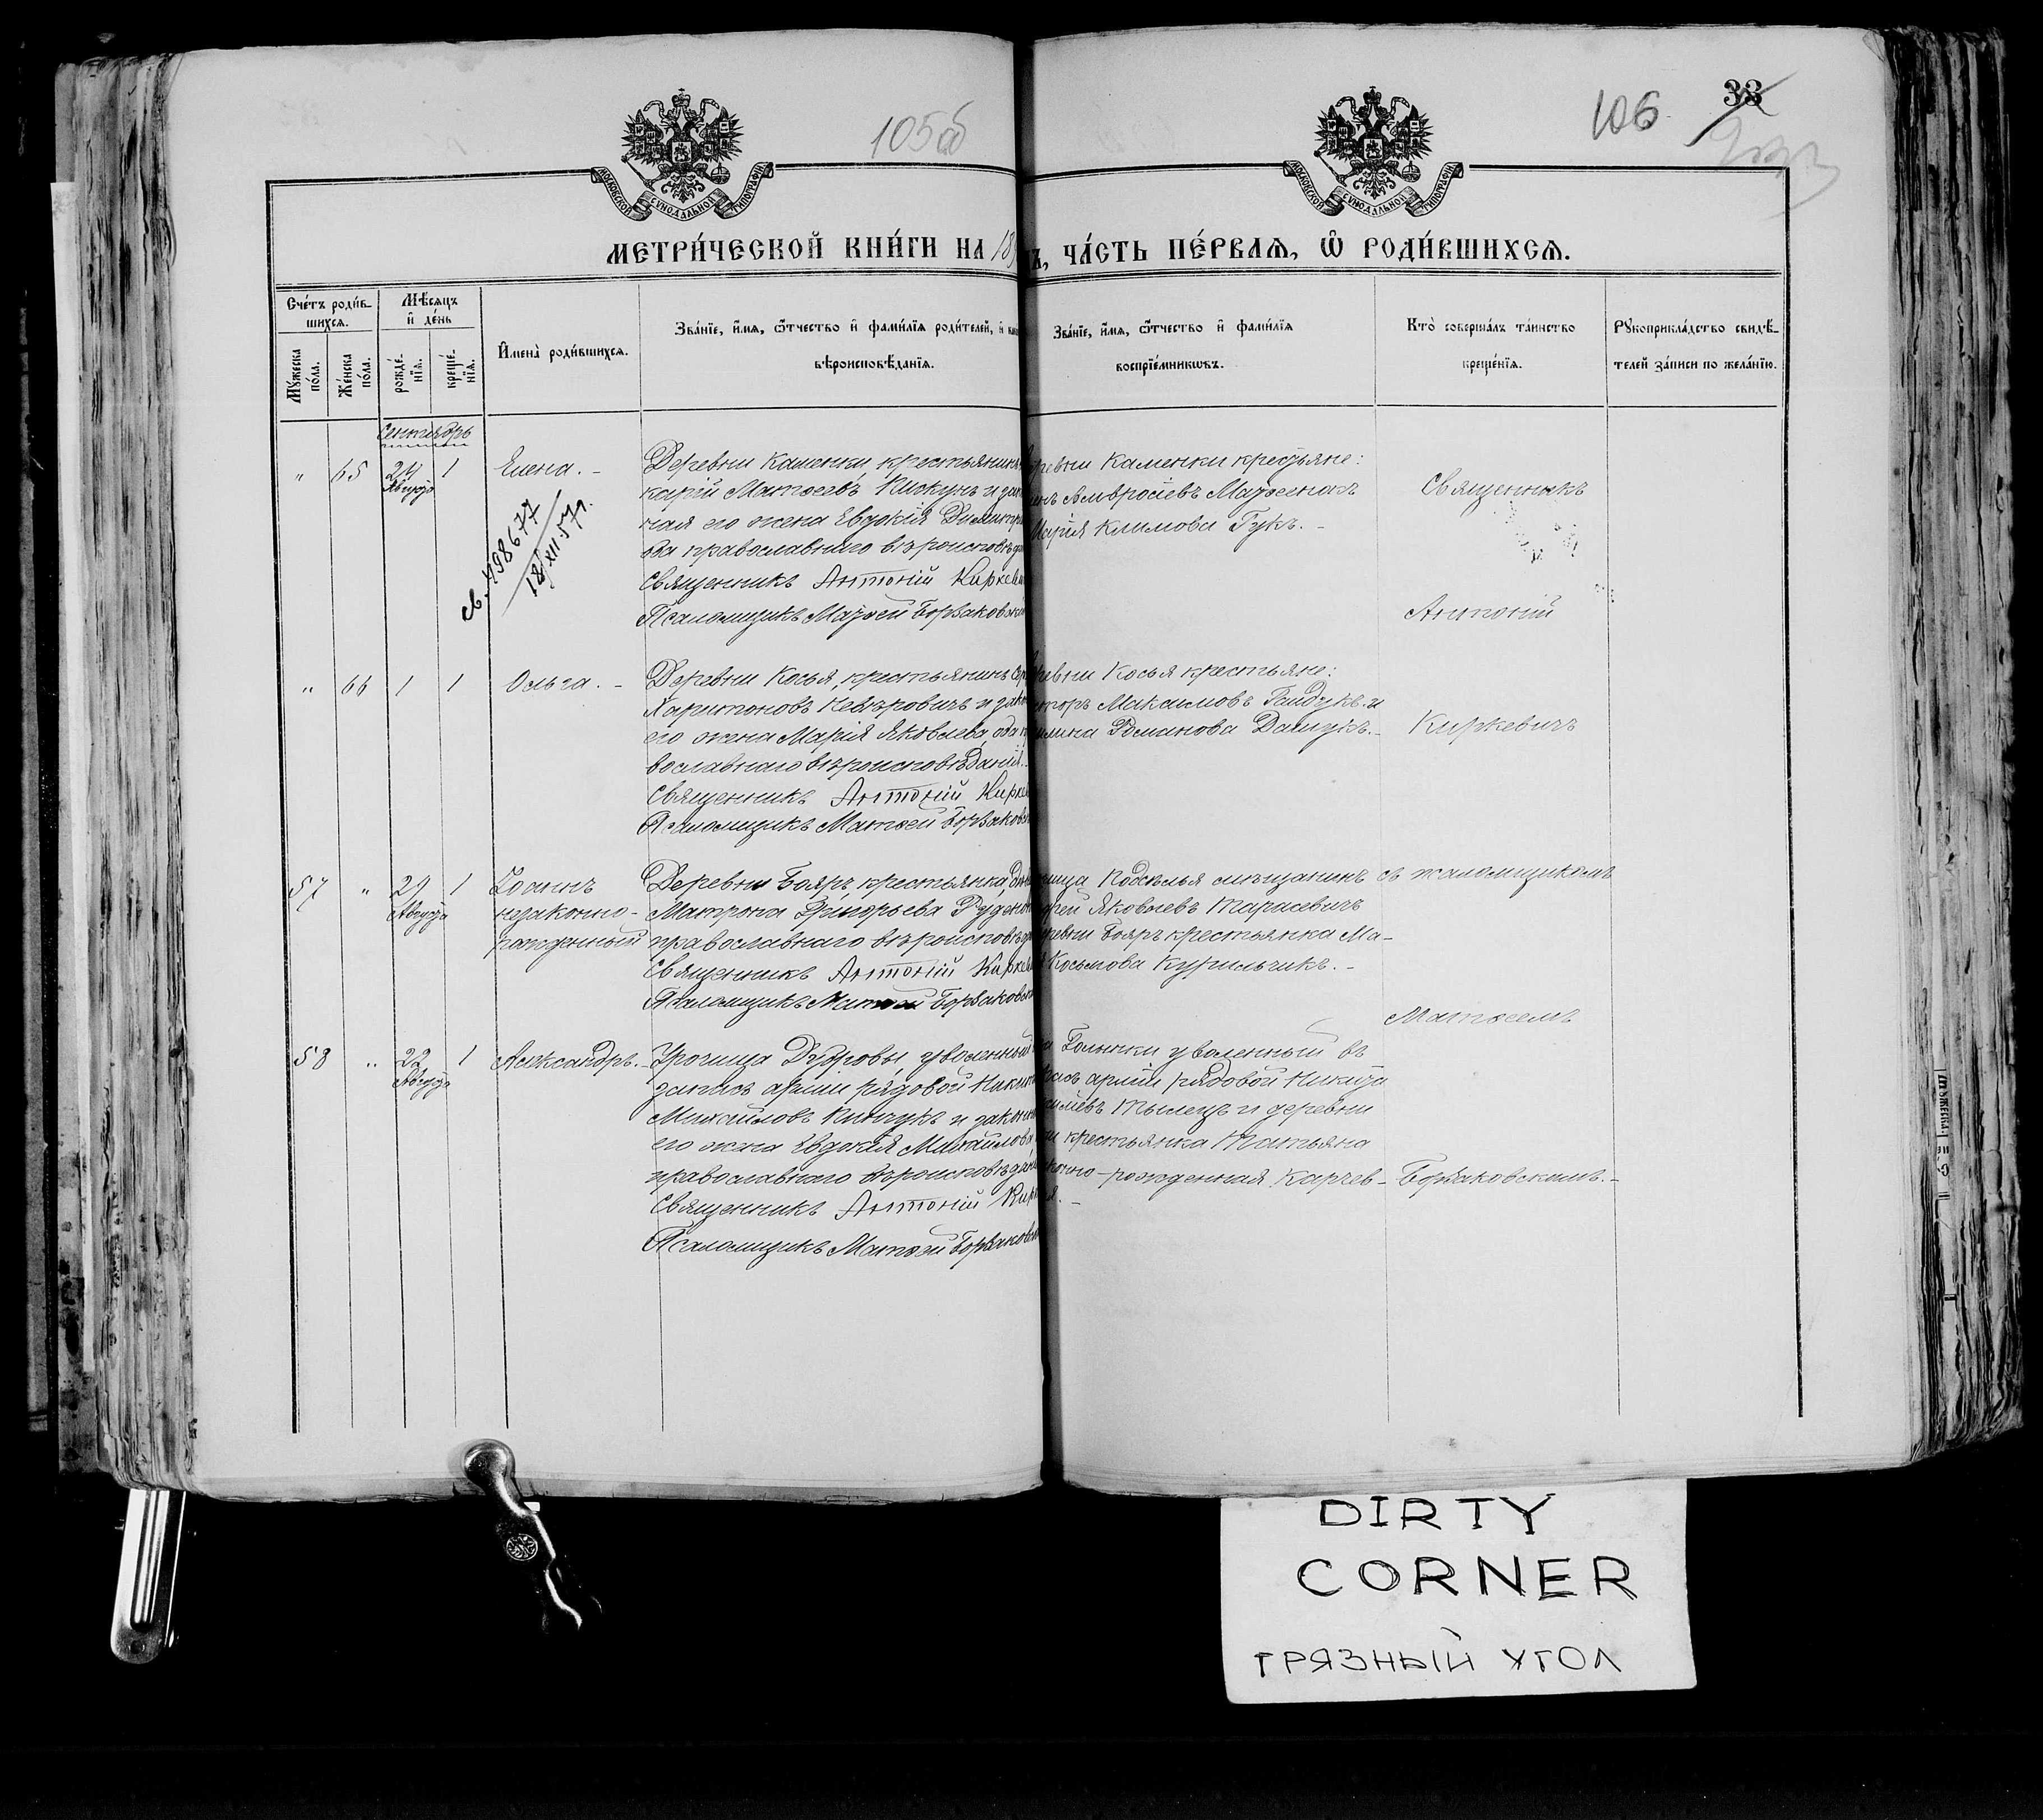 105об
106
33
МОСКОВСКОЙ СѴНОДАЛЬНОЙ ТИПОГРАФІИ
МОСКОВСКОЙ СѴНОДАЛЬНОЙ ТИПОГРАФІИ
МЕТРИ́ЧЕСКОЙ КНИ́ГИ НА 18
Ъ, ЧА́СТЬ ПЕ́РВАѦ, Ѡ҆ РОДИ́ВШИХСѦ.
Сче́тъ роди́в-
шихсѧ.
Мѣ́сѧцъ
и҆ де́нь
Мꙋ́жеска
по́ла.
Же́нска
по́ла.
рожде́-
нїѧ.
креще́-
нїѧ.
И҆мена̀ роди́вшихсѧ.
Зва́нїе, и҆́мѧ, ѻ҆́тчество и҆ фами́лїѧ роди́телей, и҆
вѣроисповѣ́данїѧ.
Зва́нїе, и҆́мѧ, ѻ҆́тчество и҆ фами́лїѧ
воспрїе́мникѡвъ.
Кто̀ соверша́лъ та́инство
креще́нїѧ.
Рꙋкоприкла́дство свидѣ́-
телей за́писи по жела́нїю.
Сентябрь
" 65 24 1 Елена. -
Августа
Деревни Каменки, крестьянинъ
карій Матѳеевъ Пискунъ и зак
ная его жена Евдокія Димитрі
ба православнаго вѣроисповѣда
Священникъ Антоній Киркеви
Псаломщикъ Матѳей Боржаковскій
ревни Каменки крестьяне:
инъ Амвросіевъ Матѳеенокъ
Марія Климова Гукъ. -
Священникъ
Антоній
св. 498677
18/XII.57г.
" 66 1 1 Ольга. -
Деревни Косья, крестьянинъ Сер
Харитоновъ Невѣровичъ и зако
его жена Марія Яковлева, оба п
вославнаго вѣроисповѣданія.
Священникъ Антоній Кирке
Псаломщикъ Матѳей Боржаков
ревни Косья крестьяне:
торъ Максимовъ Гайдукъ и
Романова Дашукъ. -
Киркевичъ
57 " 29 1 Іоаннъ
Августа
незаконно-
рожденный
Деревни Бояръ крестьянка, дѣв
Матрона Григорьева Руденк
православнаго вѣроисповѣда
Священникъ Антоній Киркев
Псаломщикъ Матѳей Боржаковск
Подселья мѣщанинъ
дрей Яковлевъ Тарасевичъ
ревни Бояръ крестьянка Ма-
Косьмова Курильчикъ. -
съ псаломщикомъ
Матѳеемъ
58 " 22 1 Александръ. -
Августа
Урочища Дубровы, уволенный
запасъ арміи рядовой Никит
Михайловъ Пинчукъ и законн
его жена Евдокія Михайлова
православнаго вѣроисповѣдан
Священникъ Антоній Кирк
Псаломщикъ Матѳей Боржаковск
Голынки уволенный въ
пасъ арміи рядовой Никита
Тылецъ и деревни
ки крестьянка Татьяна
конно-рожденная Карчев-
я. -
Боржаковскимъ. -
DIRTY
CORNER
ГРЯЗНЫЙ УГОЛ